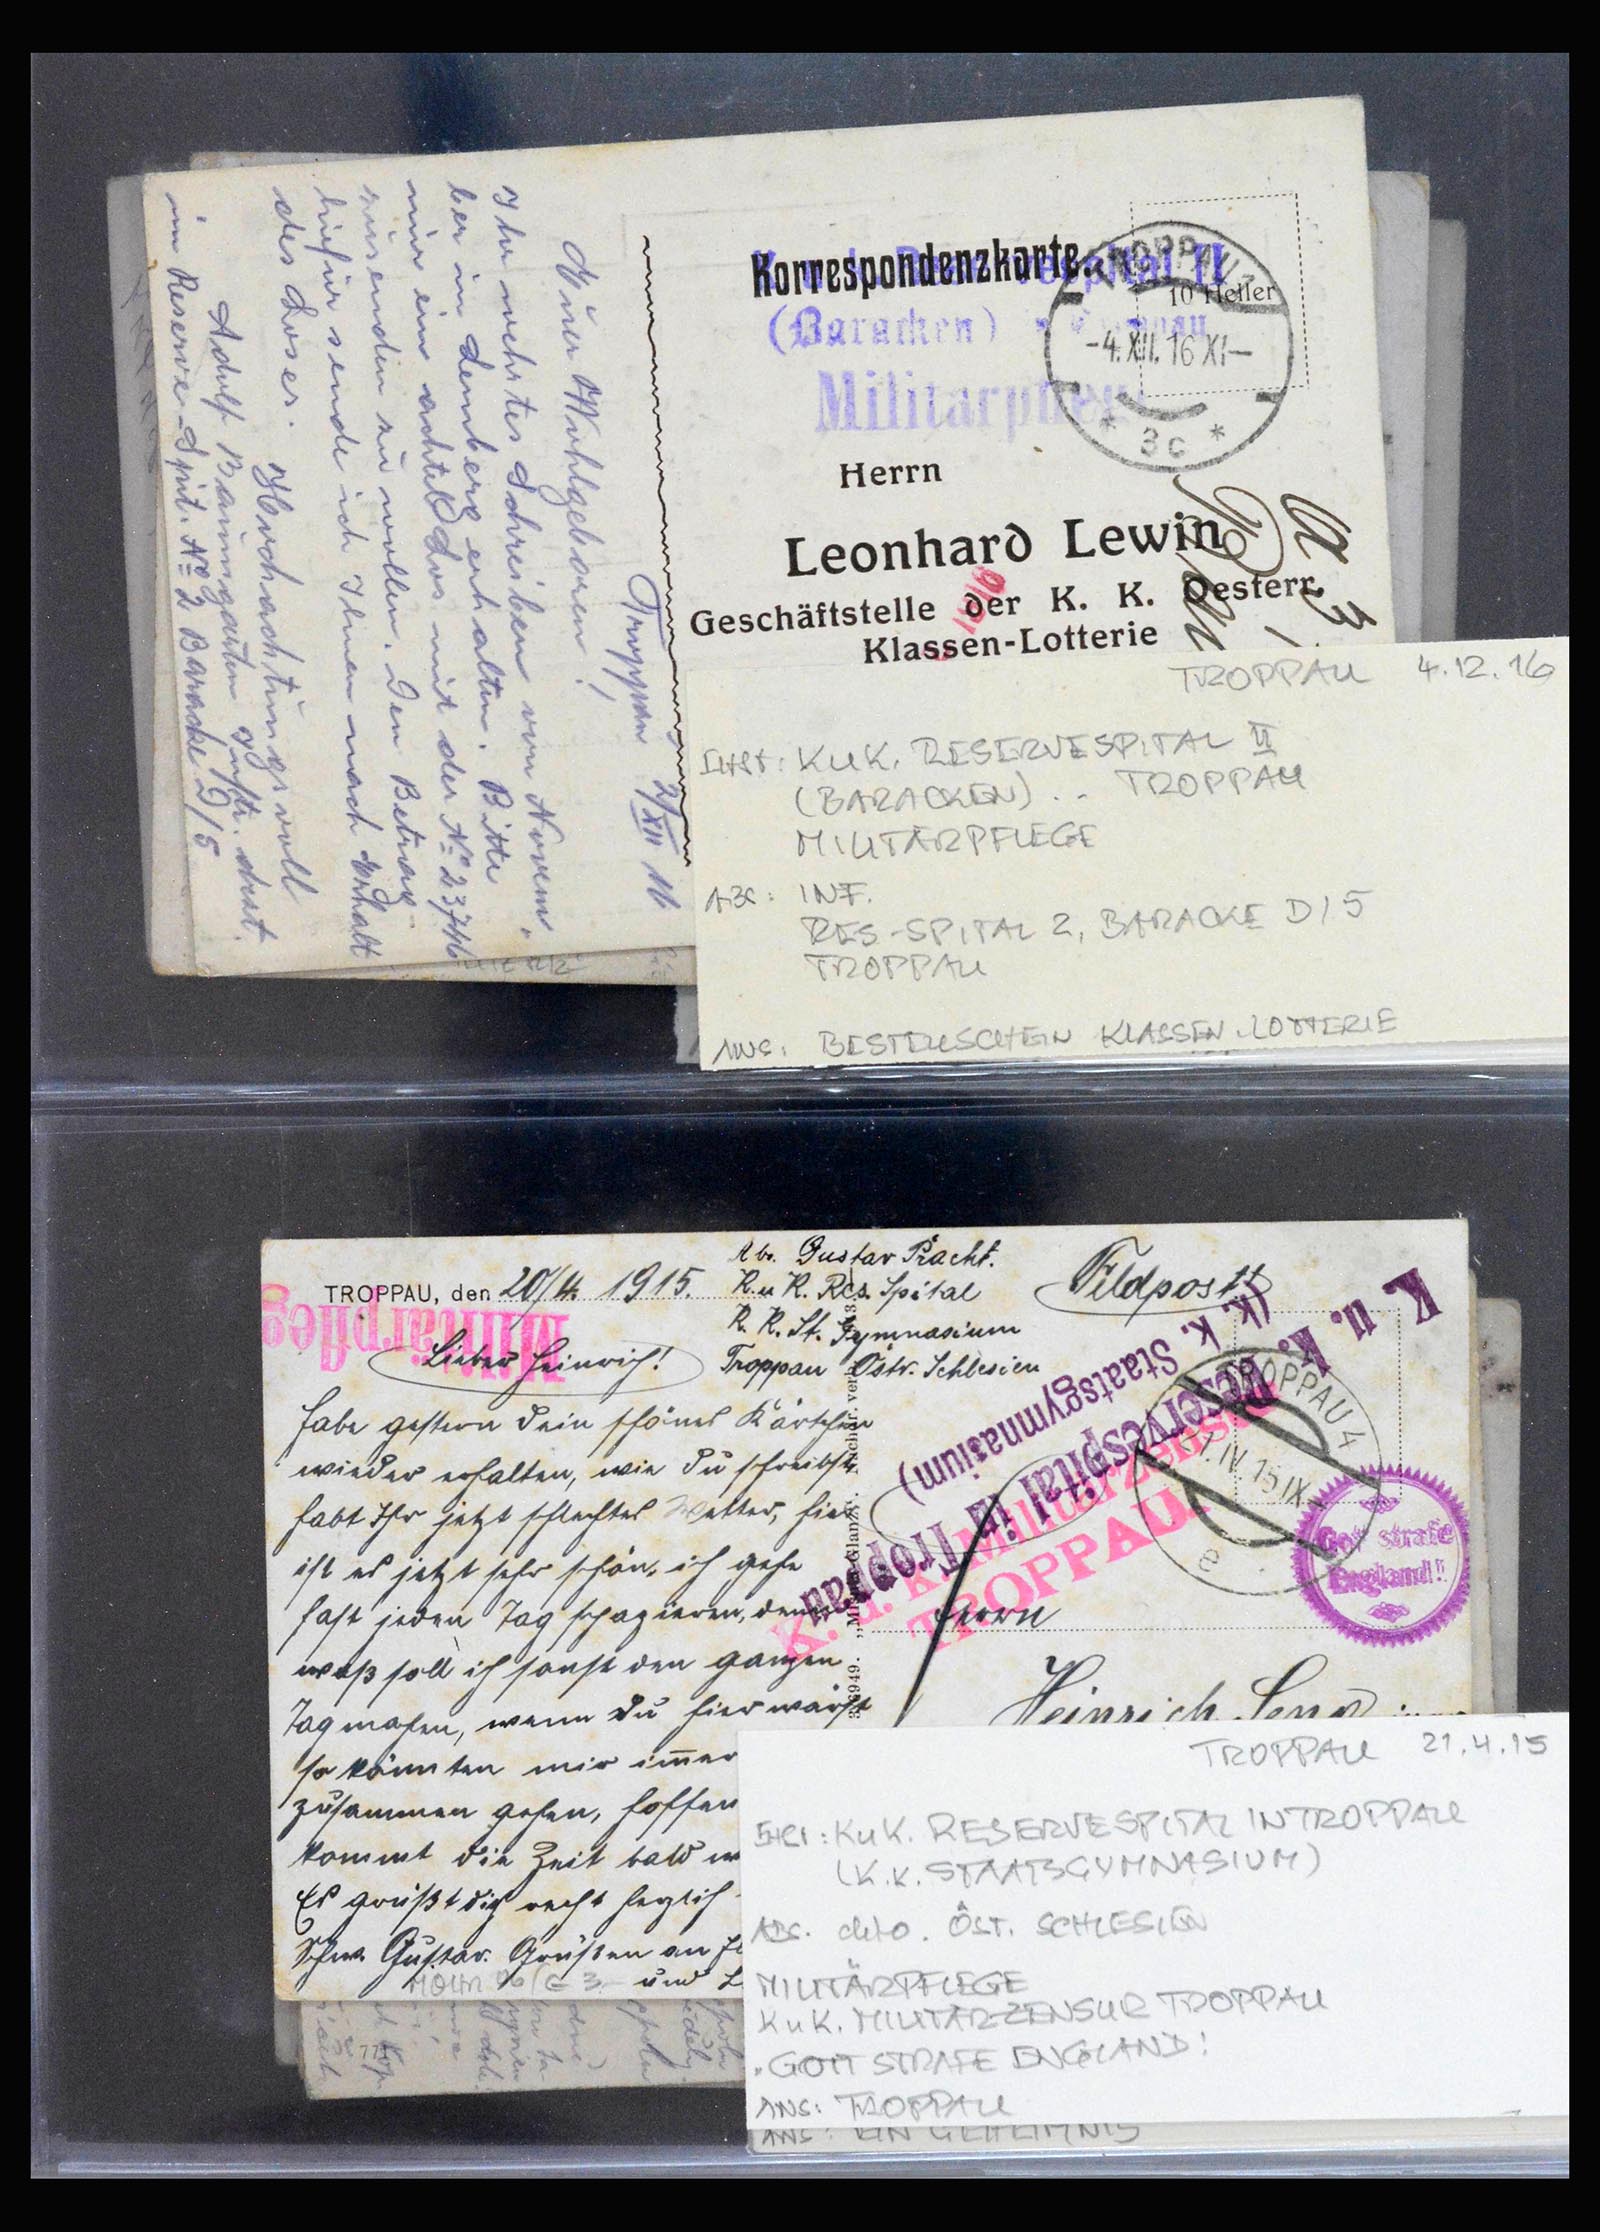 Korrespondenzkarte.
(Baracken)
Militärpflege
TROPPAU
10 Heller
-4.XII.16 XI-
* 3c *
Herrn
Leonhard Lewin
Geschäftstelle der K. K. Oesterr.
Klassen-Lotterie
Troppau 2/XII 16
Euer Wohlgeboren!
Ihr wehrtes Schreiben von Novem-
ber in Lemberg erhalten. Bitte
mir ein achtel Los mit der No 23746
zusenden zu wollen. Den Betrag
hiefür sende ich Ihnen nach Erhalt
des Loses.
Hochachtungsvoll
Adolf Baumgarten
im Reserve-Spit. No 2 Baracke D/5
TROPPAU 4.12.16
KuK. RESERVESPITAL II
(BARACKEN) .. TROPPAU
MILITÄRPFLEGE
ABS: INF.
RES-SPITAL 2, BARACKE D/5
TROPPAU
ANS: BESTELLSCHEIN KLASSEN-LOTTERIE
TROPPAU, den 20/4. 1915.
Militärpfleg
Abs. Gustav Pracht.
K. u K. Res. Spital
K. K. St. Gymnasium
Troppau Östr. Schlesien
Feldpost
K. u. K. Reservespital in Troppau
(k. k. Staatsgymnasium)
K. u. K. Militärzensur
TROPPAU.
TROPPAU 4
IV. 15 IX-
e
Gott strafe
England!!
Lieber Heinrich!
Habe gestern Dein schönes Kärtchen
wieder erhalten, wie Du schreibst
habt Ihr jetzt schlechtes Wetter, hier
ist es jetzt sehr schön, ich gehe
fast jeden Tag spazieren, denn
was soll ich sonst den ganzen
Tag machen, wenn Du hier wärst
so könnten wir immer
zusammen gehen, hoffen
kommt die Zeit bald
Es grüßt dich recht herzlich
Gustav. Grüßen an
und
Herrn
Heinrich
TROPPAU 21.4.15
KuK. RESERVESPITAL IN TROPPAU
(K.K. STAATSGYMNASIUM)
ABS. detto. ÖST. SCHLESIEN
MILITÄRPFLEGE
KuK. MILITÄRZENSUR TROPPAU
"GOTT STRAFE ENGLAND!
ANS: TROPPAU
ANS: EIN GEHEIMNIS